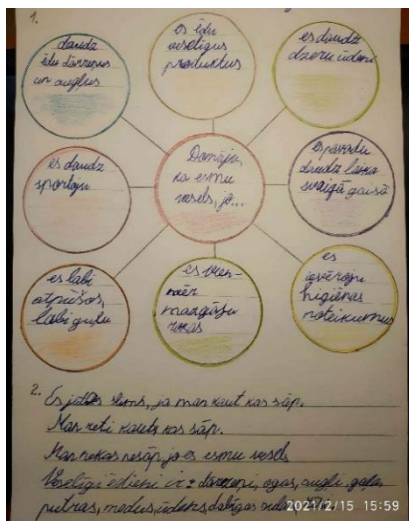 1.
daudz
ēdu dārzeņus
un augļus
es ēdu
veselīgus
produktus
es daudz
dzeru ūdeni
es daudz
sportoju
Domāju,
ka esmu
vesels, jo...
es pavadu
daudz laika
svaigā gaisā
es labi
atpūšos,
labi guļu
es vien-
mēr
mazgāju
rokas
es
ievēroju
higiēnas
noteikumus
2. Es jūtos slims, ja man kaut kas sāp.
Man reti kauts kas sāp.
Man nekas nesāp, jo es esmu vesels
Veselīgi ēdieni ir: dārzeņi, ogas, augļi, gaļa
putras, medus, ūdens,
2021/2/15 15:59